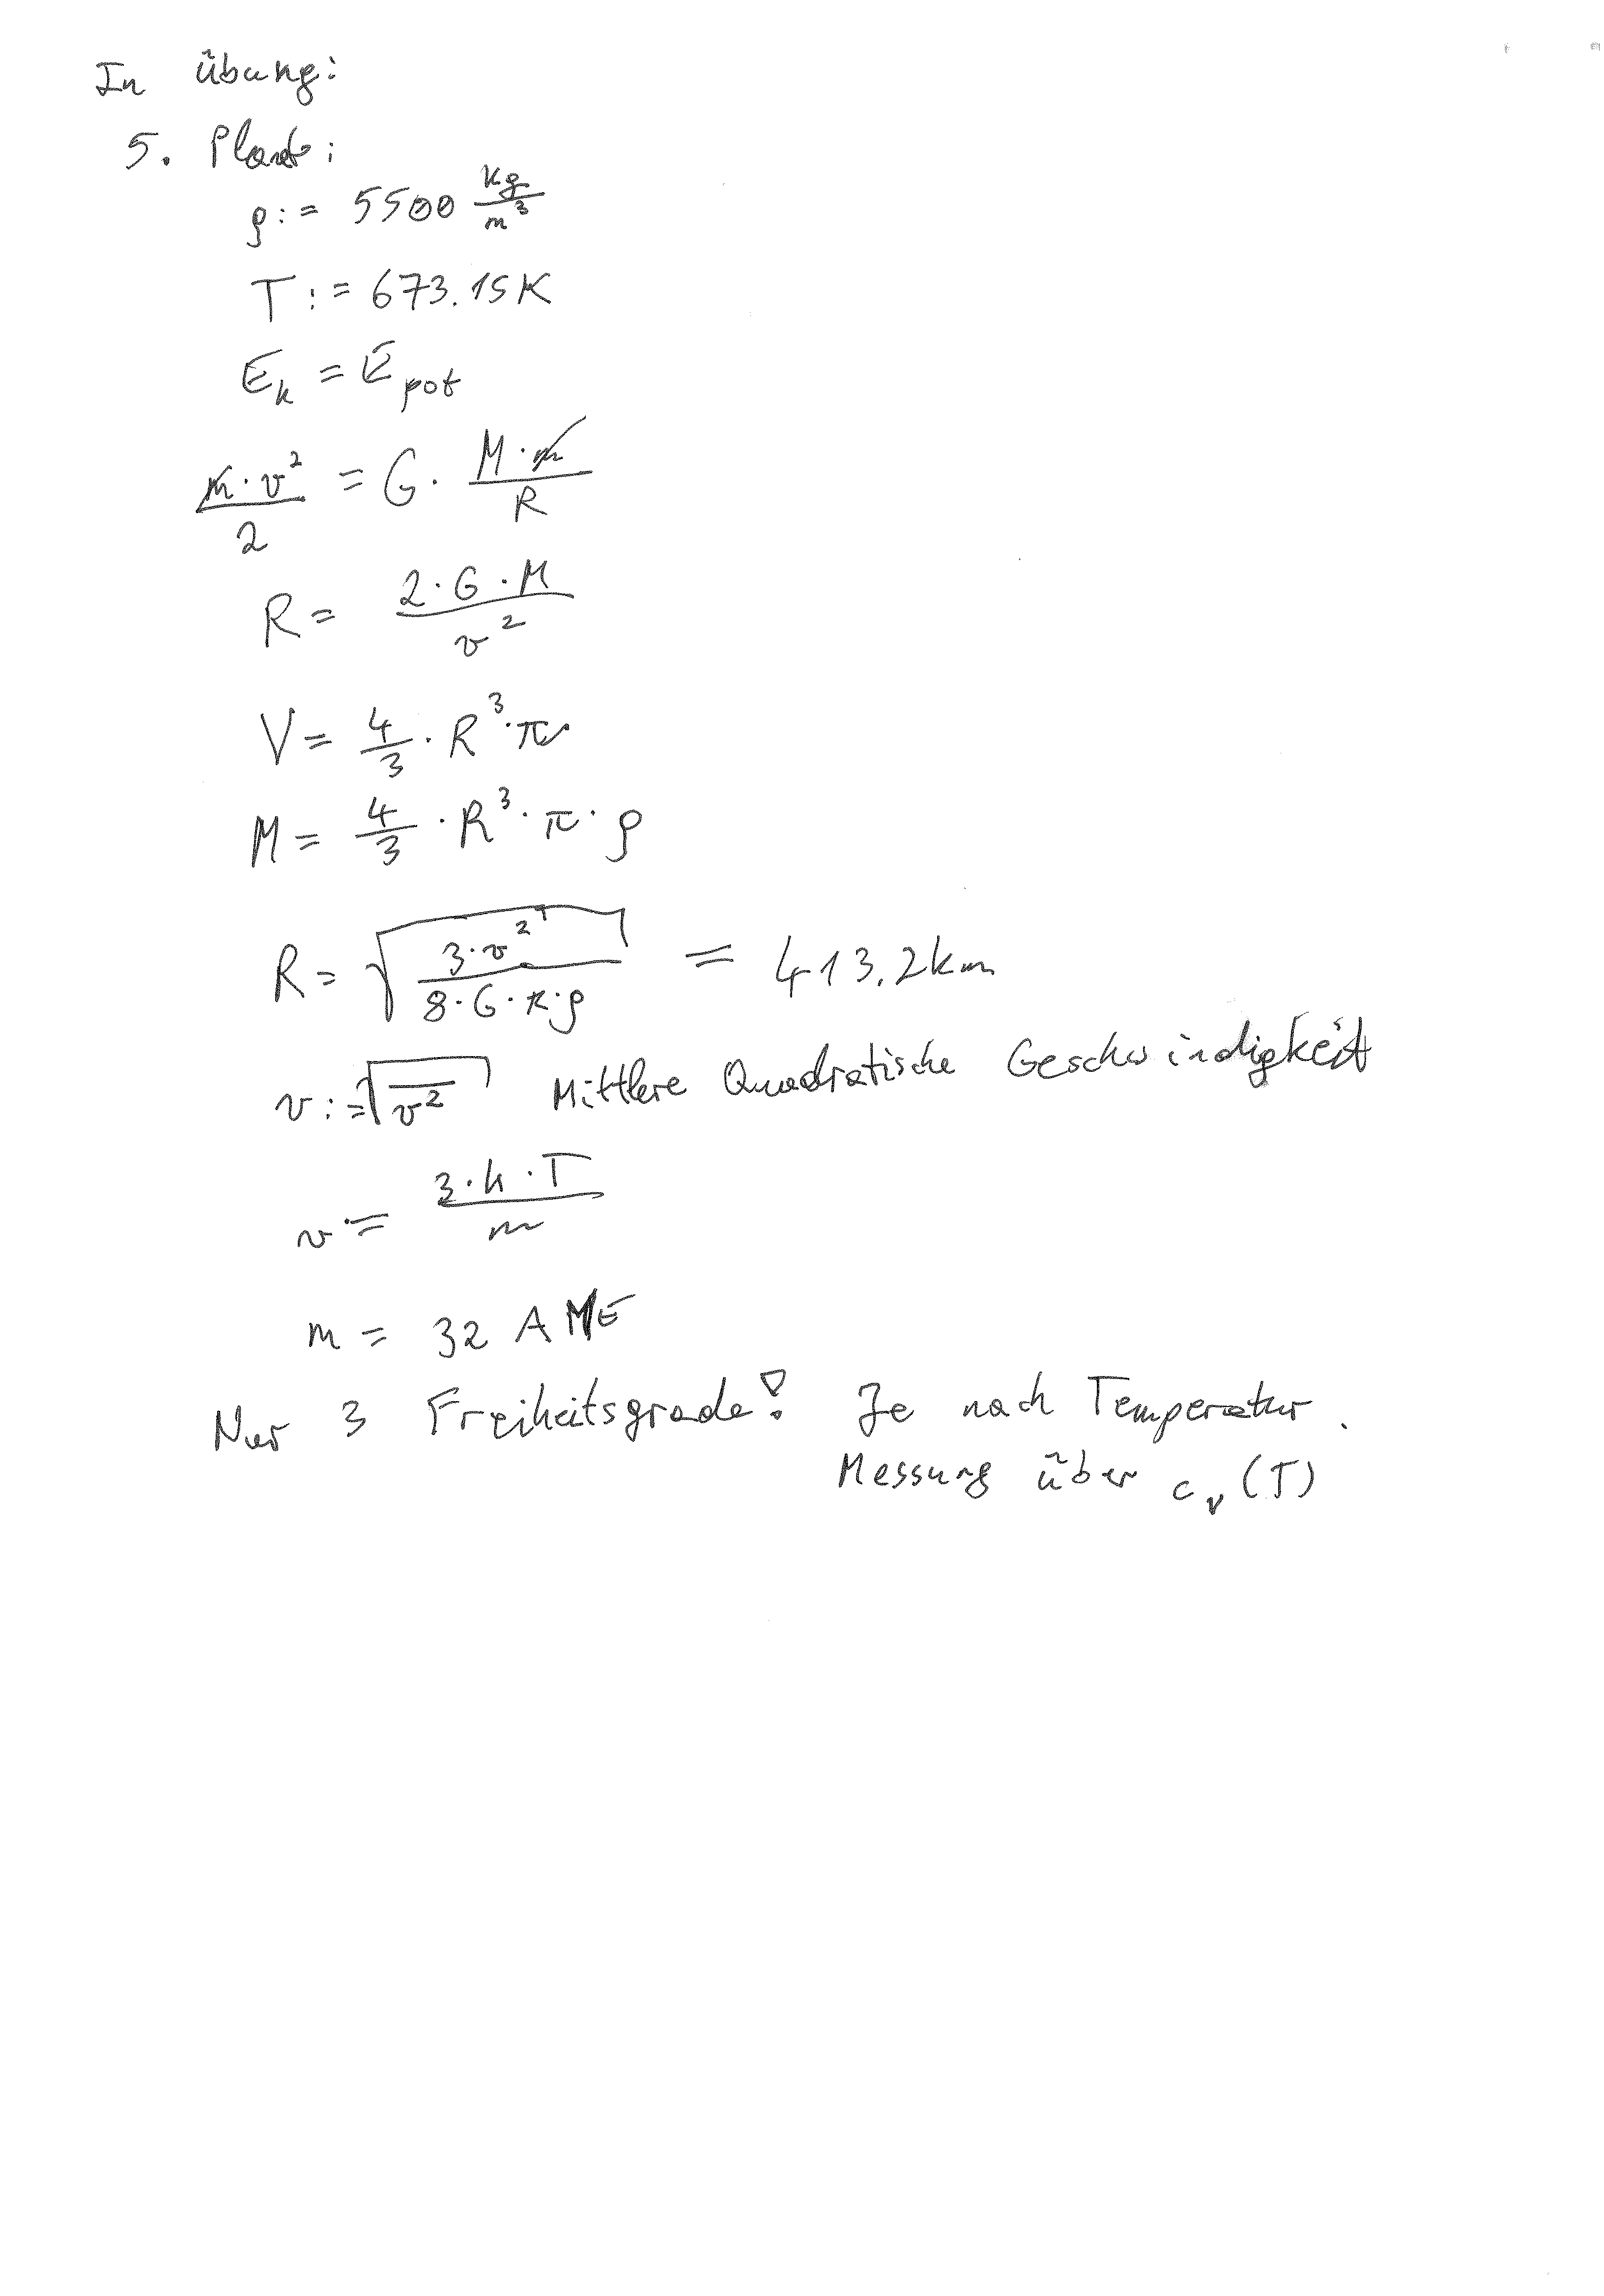 In Übung:
5. Planet:
ρ := 5500 kg/m³
T := 673.15K
E_k = E_pot
m·v²/2 = G · M·m/R
R = 2·G·M/v²
V = 4/3 · R³·π
M = 4/3 · R³·π·ρ
R = √(3·v²/(8·G·π·ρ)) = 413.2km
v := √(v̅²) Mittlere Quadratische Geschwindigkeit
v := 3·k·T/m
m = 32 AME
Nur 3 Freiheitsgrade! Je nach Temperatur.
Messung über c_v(T)